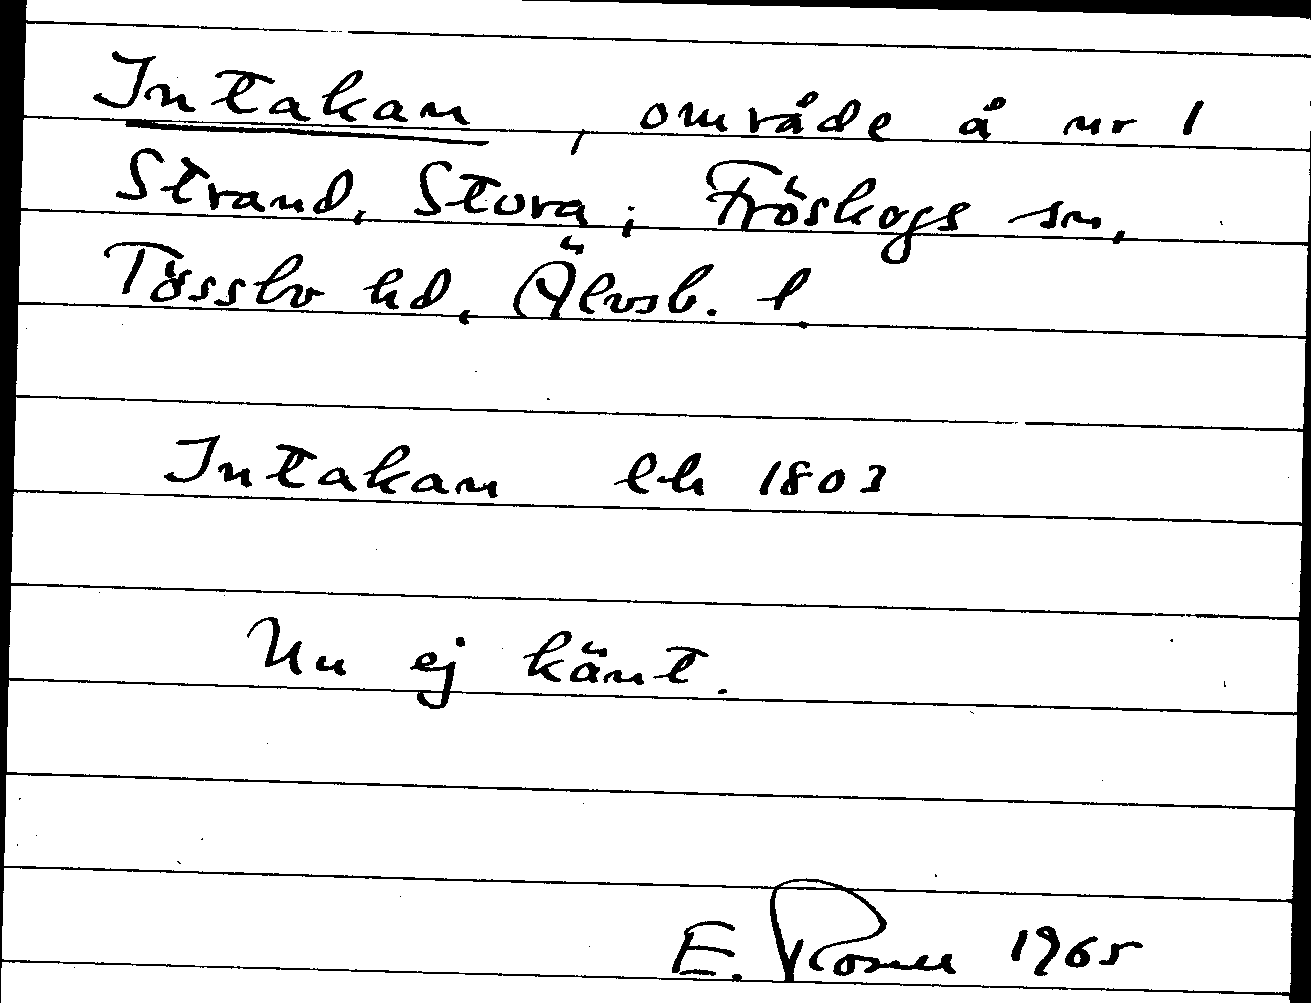 Intakan, område å nr 1
Strand, Stora; Fröskogs sn,
Tössbo hd, Älvsb. l.
Intakan lh 1803
Nu ej känt.
E. Rosell 1965